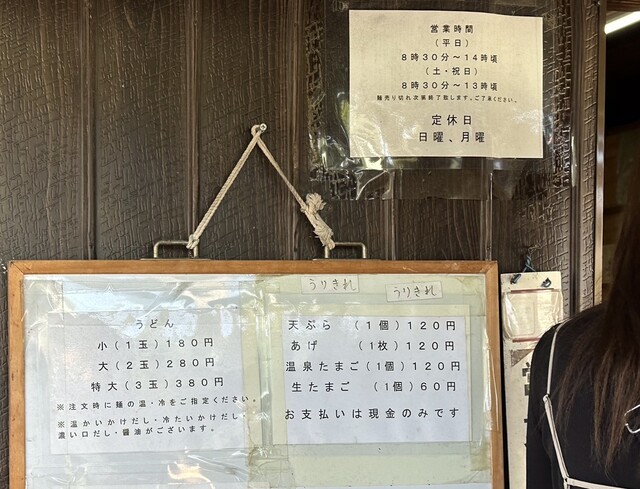 営業時間
(平日)
8時30分～14時頃
(土・祝日)
8時30分～13時頃
麺売り切れ次第終了致します。ご了承ください。
定休日
日曜、月曜
うりきれ
うりきれ
うどん
小(1玉)180円
大(2玉)280円
特大(3玉)380円
※注文時に麺の温・冷をご指定ください。
※温かいかけだし・冷たいかけだし
濃い口だし・醤油がございます。
天ぷら (1個)120円
あげ (1枚)120円
温泉たまご(1個)120円
生たまご (1個)60円
お支払いは現金のみです